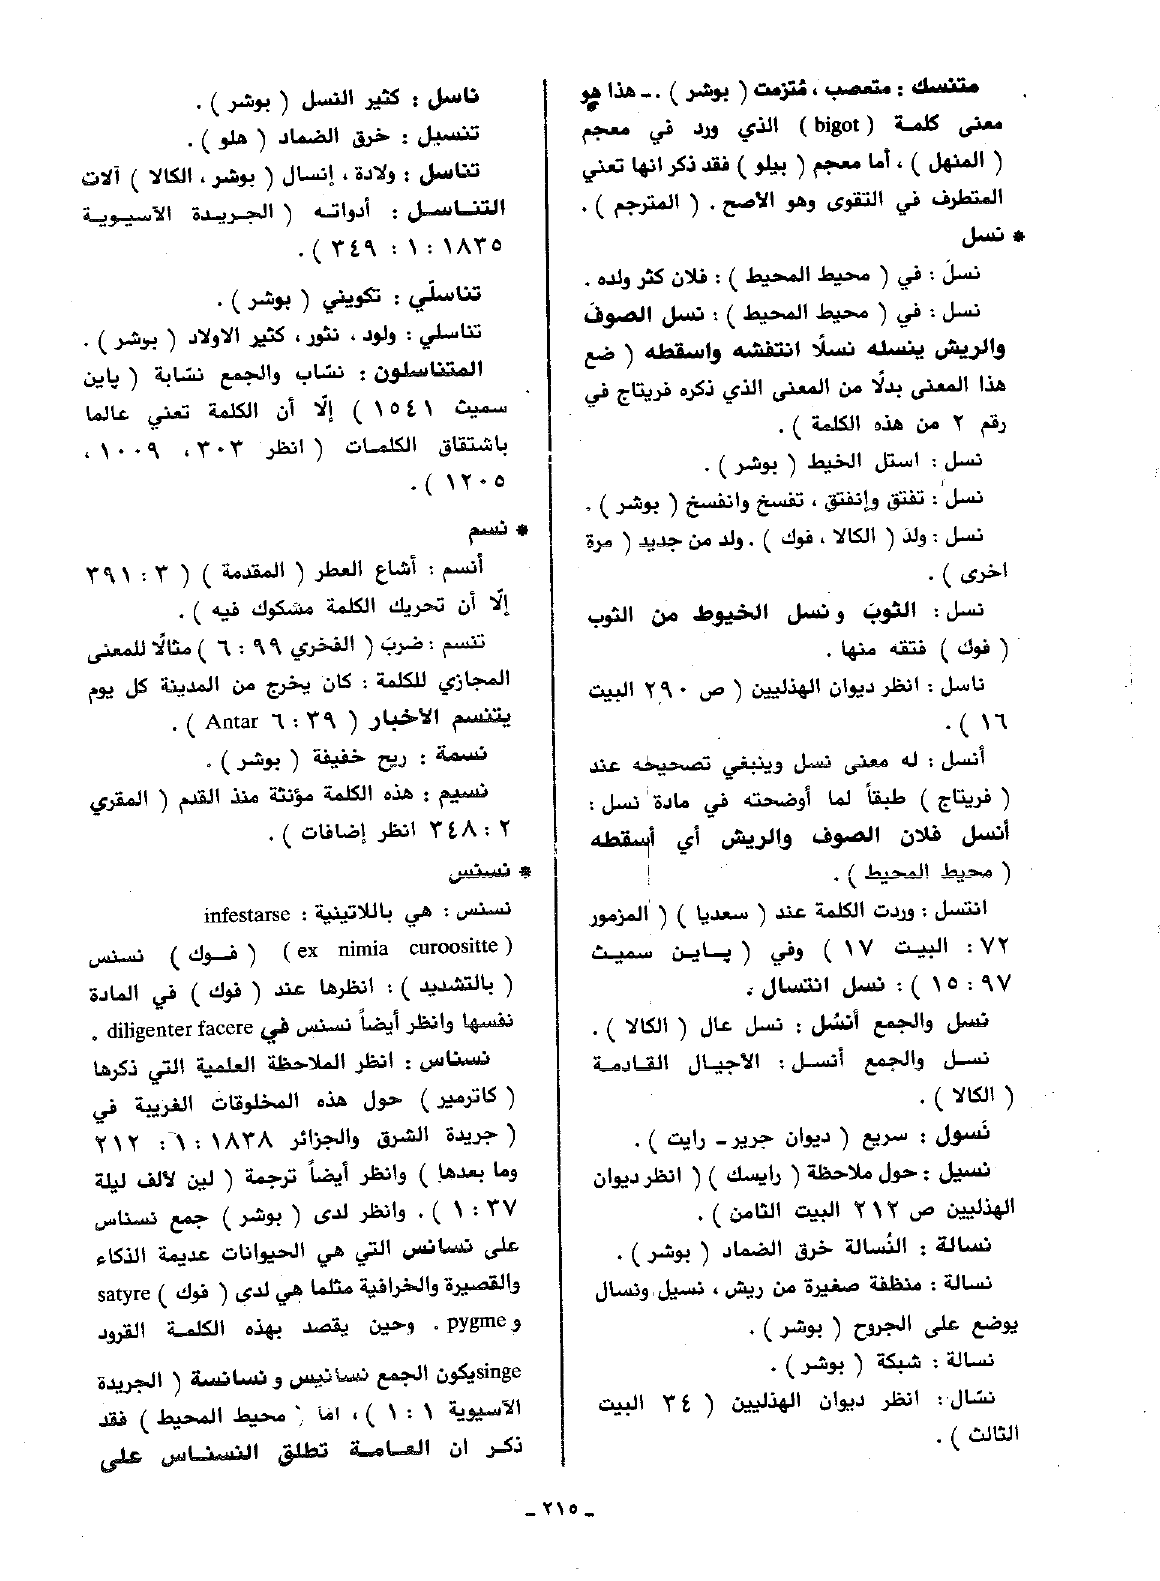 متنسك : متعصب ، مُتزمت ( بوشر ) .ـ هذا هو
معنى كلمة ( bigot ) الذي ورد في معجم
( المنهل ) ، أما معجم ( بيلو ) فقد ذكر انها تعني
المتطرف في التقوى وهو الأصح . ( المترجم ) .
* نسل
نسلَ : في ( محيط المحيط ) : فلان كثر ولده .
نسل : في ( محيط المحيط ) : نسل الصوفَ
والريش ينسله نسلًا انتفشه واسقطه ( ضع
هذا المعنى بدلًا من المعنى الذي ذكره فريتاج في
رقم ٢ من هذه الكلمة ) .
نسل : استل الخيط ( بوشر ) .
نسل : تفتق وإنفتق ، تفسخ وانفسخ ( بوشر ) .
نسل : ولدَ ( الكالا ، فوك ) . ولد من جديد ( مرة
اخرى ) .
نسل : الثوبَ ونسل الخيوط من الثوب
( فوك ) فتقه منها .
ناسل : انظر ديوان الهذليين ( ص ٢٩٠ البيت
١٦ ) .
أنسل : له معنى نسل وينبغي تصحيحه عند
( فريتاج ) طبقاً لما أوضحته في مادة نسل :
أنسل فلان الصوف والريش أي أسقطه
( محيط المحيط ) .
انتسل : وردت الكلمة عند ( سعديا ) ( المزمور
٧٢ : البيت ١٧ ) وفي ( پاين سميث
٩٧ : ١٥ ) : نسل انتسال .
نسل والجمع أنسُل : نسل عال ( الكالا ) .
نسل والجمع أنسل : الأجيال القادمة
( الكالا ) .
نَسول : سريع ( ديوان جرير ـ رايت ) .
نسيل : حول ملاحظة ( رايسك ) ( انظر ديوان
الهذليين ص ٢١٢ البيت الثامن ) .
نسالة : النُسالة خرق الضماد ( بوشر ) .
نسالة : منظفة صغيرة من ريش ، نسيل ونسال
يوضع على الجروح ( بوشر ) .
نسالة : شبكة ( بوشر ) .
نسّال : انظر ديوان الهذليين ( ٣٤ البيت
الثالث ) .
ناسل : كثير النسل ( بوشر ) .
تنسيل : خرق الضماد ( هلو ) .
تناسل : ولادة ، إنسال ( بوشر ، الكالا ) آلات
التناسل : أدواته ( الجريدة الآسيوية
١٨٣٥ : ١ : ٣٤٩ ) .
تناسلّي : تكويني ( بوشر ) .
تناسلي : ولود ، نثور ، كثير الاولاد ( بوشر ) .
المتناسلون : نسّاب والجمع نسّابة ( پاين
سميث ١٥٤١ ) إلّا أن الكلمة تعني عالما
باشتقاق الكلمات ( انظر ٣٠٣ ، ١٠٠٩ ،
١٢٠٥ ) .
* نسم
أنسم : أشاع العطر ( المقدمة ) ( ٣ : ٣٩١
إلّا أن تحريك الكلمة مشكوك فيه ) .
تنسم : ضربَ ( الفخري ٩٩ : ٦ ) مثالًا للمعنى
المجازي للكلمة : كان يخرج من المدينة كل يوم
يتنسم الأخبار ( ٣٩ : ٦ Antar ) .
نسمة : ريح خفيفة ( بوشر ) .
نسيم : هذه الكلمة مؤنثة منذ القدم ( المقري
٢ : ٣٤٨ انظر إضافات ) .
* نسنس
نسنس : هي باللاتينية : infestarse
( ex nimia curoositte ) ( فوك ) نسنس
( بالتشديد ) : انظرها عند ( فوك ) في المادة
نفسها وانظر أيضاً نسنس في diligenter facere .
نسناس : انظر الملاحظة العلمية التي ذكرها
( كاترمير ) حول هذه المخلوقات الغريبة في
( جريدة الشرق والجزائر ١٨٣٨ : ١ : ٢١٢
وما بعدها ) وانظر أيضاً ترجمة ( لين لألف ليلة
٣٧ : ١ ) . وانظر لدى ( بوشر ) جمع نسناس
على نسانس التي هي الحيوانات عديمة الذكاء
والقصيرة والخرافية مثلما هي لدى ( فوك ) satyre
و pygme . وحين يقصد بهذه الكلمة القرود
singe يكون الجمع نسانيس ونسانسة ( الجريدة
الآسيوية ١ : ١ ) ، اما ( محيط المحيط ) فقد
ذكر ان العامة تطلق النسناس على
ـ ٢١٥ ـ